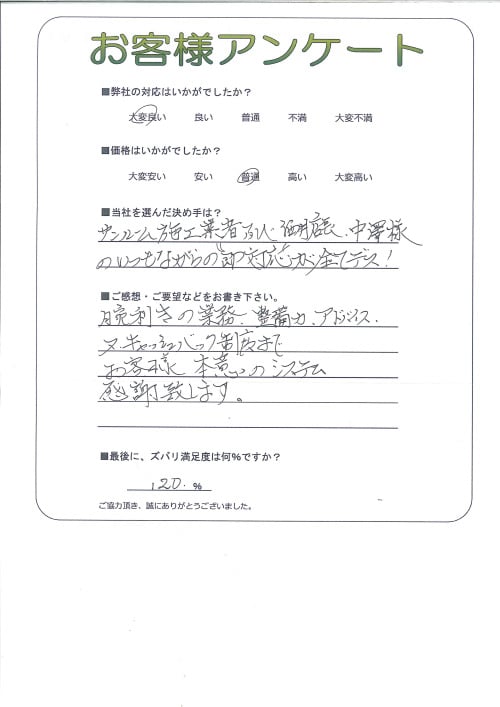 お客様アンケート
■弊社の対応はいかがでしたか？
大変良い 良い 普通 不満 大変不満
■価格はいかがでしたか？
大変安い 安い 普通 高い 大変高い
■当社を選んだ決め手は？
サンルーム施工業者及び 店長、中澤様
のいつもながらの即対応が全てデス！
■ご感想・ご要望などをお書き下さい。
腕利きの業務、整備力、アドバイス、
又、キャッシュバック制度まで
お客様 本意のシステム
感謝致します。
■最後に、ズバリ満足度は何％ですか？
120 ％
ご協力頂き、誠にありがとうございました。